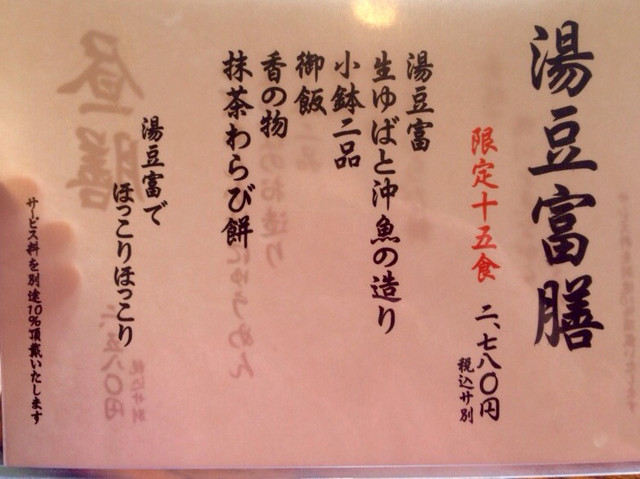 湯豆富膳
限定十五食
二、七八〇円
税込サ別
湯豆富
生ゆばと沖魚の造り
小鉢二品
御飯
香の物
抹茶わらび餅
湯豆富で
ほっこりほっこり
サービス料を別途10%頂戴いたします
昼膳